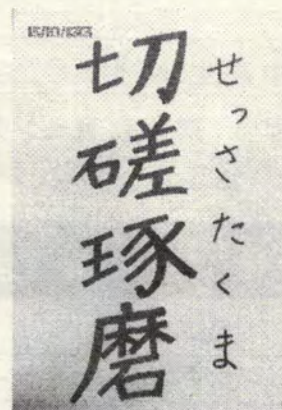 切磋琢磨
せっさたくま